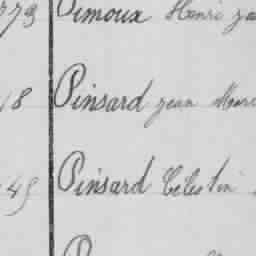 Pimoux Henri
18 Pinsard jean
45 Pinsard Celestin